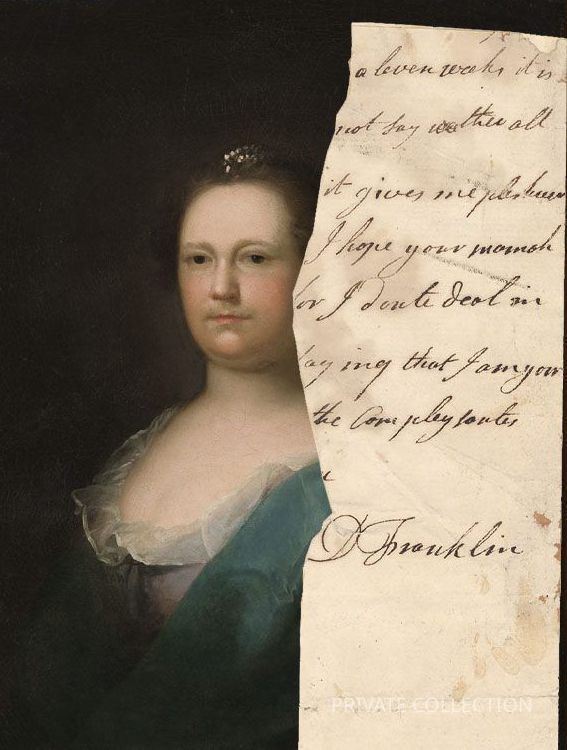 a leven weeks it is
not say all
it gives me
I hope your mamah
or I donte deal in
aying that I am your
the Compleysantes
D Franklin
PRIVATE COLLECTION